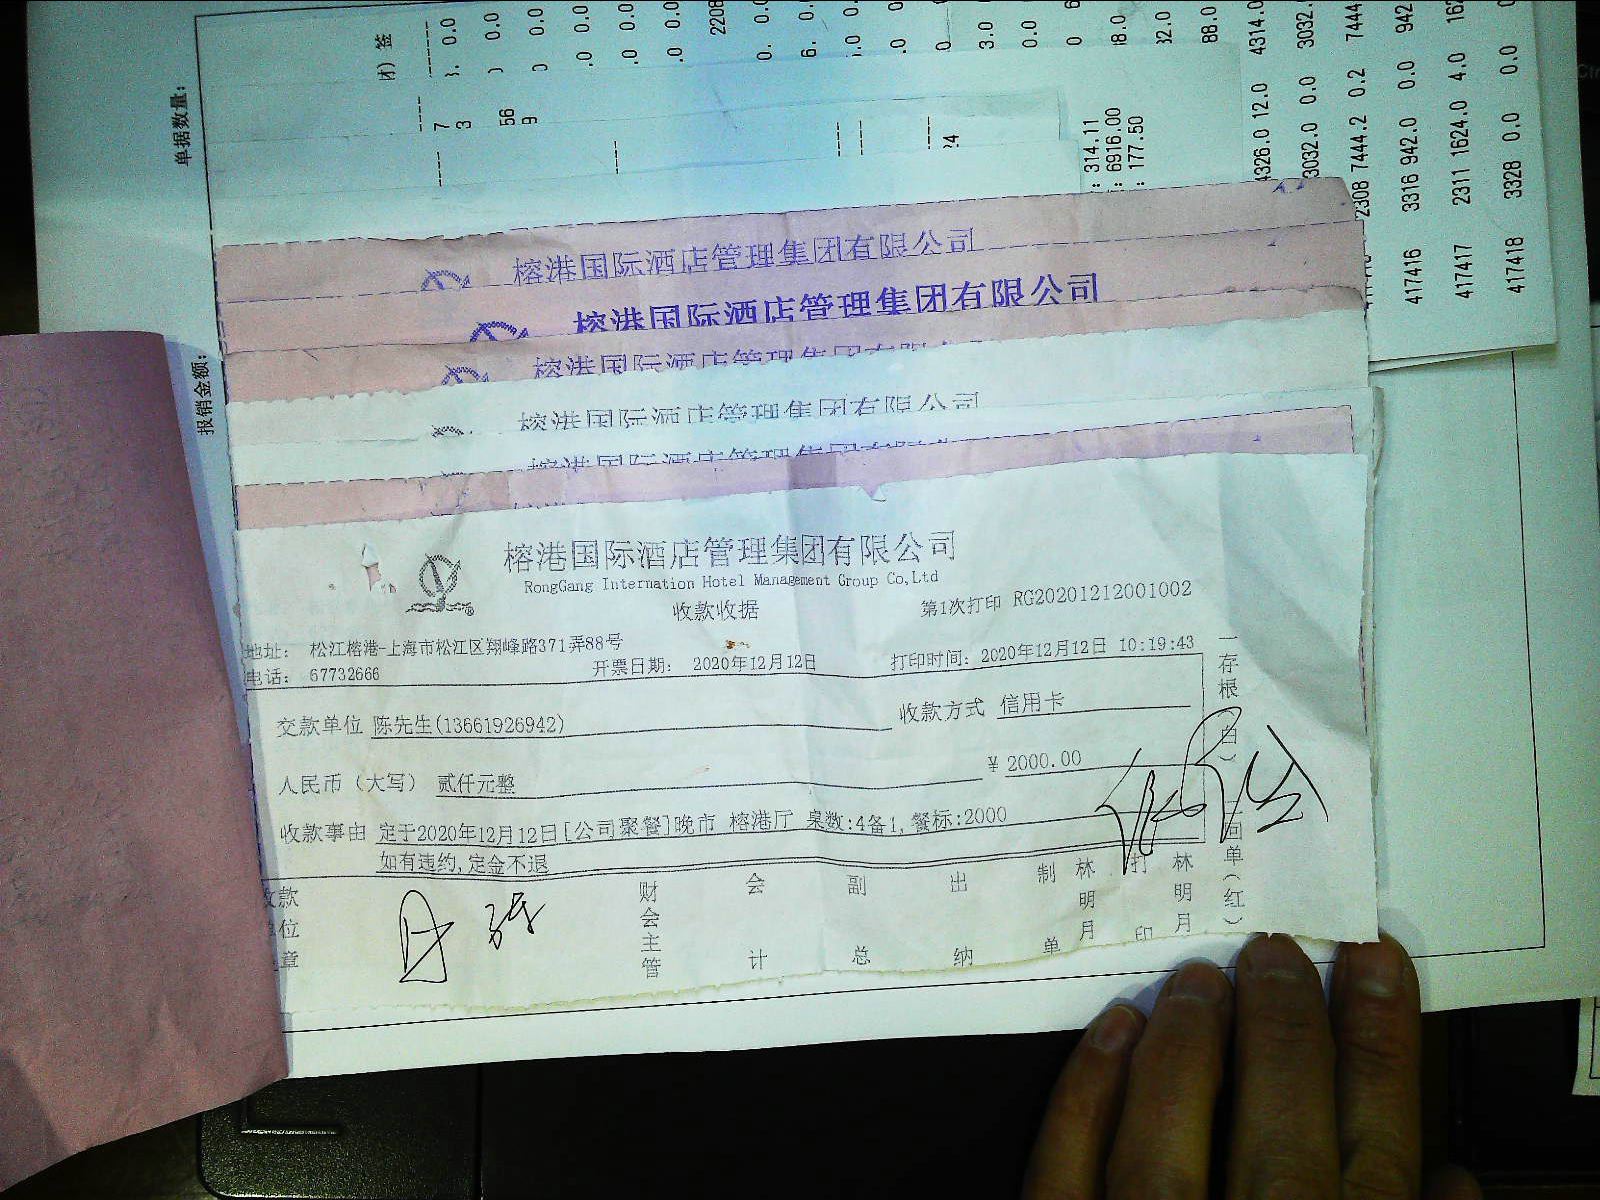 单据数量：
报销金额：
团）签
314.11
6916.00
177.50
4326.0 12.0 4314.0
3032.0 0.0 3032.
2308 7444.2 0.2 7444
417416 3316 942.0 0.0 942
417417 2311 1624.0 4.0 162
417418 3328 0.0 0.0
榕港国际酒店管理集团有限公司
榕港国际酒店管理集团有限公司
榕港国际酒店管理集团有限公司
榕港国际酒店管理集团有限公司
榕港国际酒店管理集团
榕港国际酒店管理集团有限公司
RongGang Internation Hotel Management Group Co,Ltd
收款收据
第1次打印 RG20201212001002
地址： 松江榕港-上海市松江区翔峰路371弄88号
电话： 67732666
开票日期： 2020年12月12日
打印时间：2020年12月12日 10:19:43
交款单位 陈先生(13661926942)
收款方式 信用卡
人民币（大写） 贰仟元整
¥ 2000.00
收款事由 定于2020年12月12日[公司聚餐]晚市 榕港厅 桌数:4备1,餐标:2000
如有违约,定金不退
收款单位章
财会主管
会计
副总
出纳
制单
林明月
打印
林明月
一存根（白）
二回单（红）